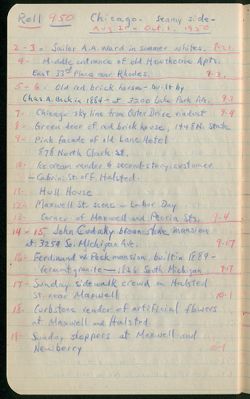 Roll 950 Chicago - seamy side -
Aug 20 - Oct. 1, 1950
2-3 - Sailor A.A. Ward in summer whites. 9-2.
4 - Middle entrance of old Hawthorne Apts.
East 33rd Place near Rhodes. 9-3.
5-6 - Old red brick house - built by
Chas. A. in 1884 - at 3200 Lake Park Ave. 9-3
7 - Chicago sky line from Outer Drive 9-4
8 - Green door of red brick house, 1448 N. State
9 - Pink facade of old Lane Hotel
878 North Clark St.
10 - Korean vender & second-story
Cabrini St. off Halsted.
11 - Hull House
12 - Maxwell St. scene - Labor Day
13 - Corner of Maxwell and Peoria Sts. 9-4
14-15 John Cudahy brown stone mansion
at 3254 So. Michigan Ave. 9-17
16 - Ferdinand W. Peck mansion built in 1889 -
granite - 1826 South Michigan 9-17
17 - Sunday sidewalk crowd on Halsted
St. near Maxwell 10-1
18 - Curbstone vender of artificial flowers
at Maxwell and Halsted
19 - Sunday shoppers at Maxwell and
Newberry 10-1